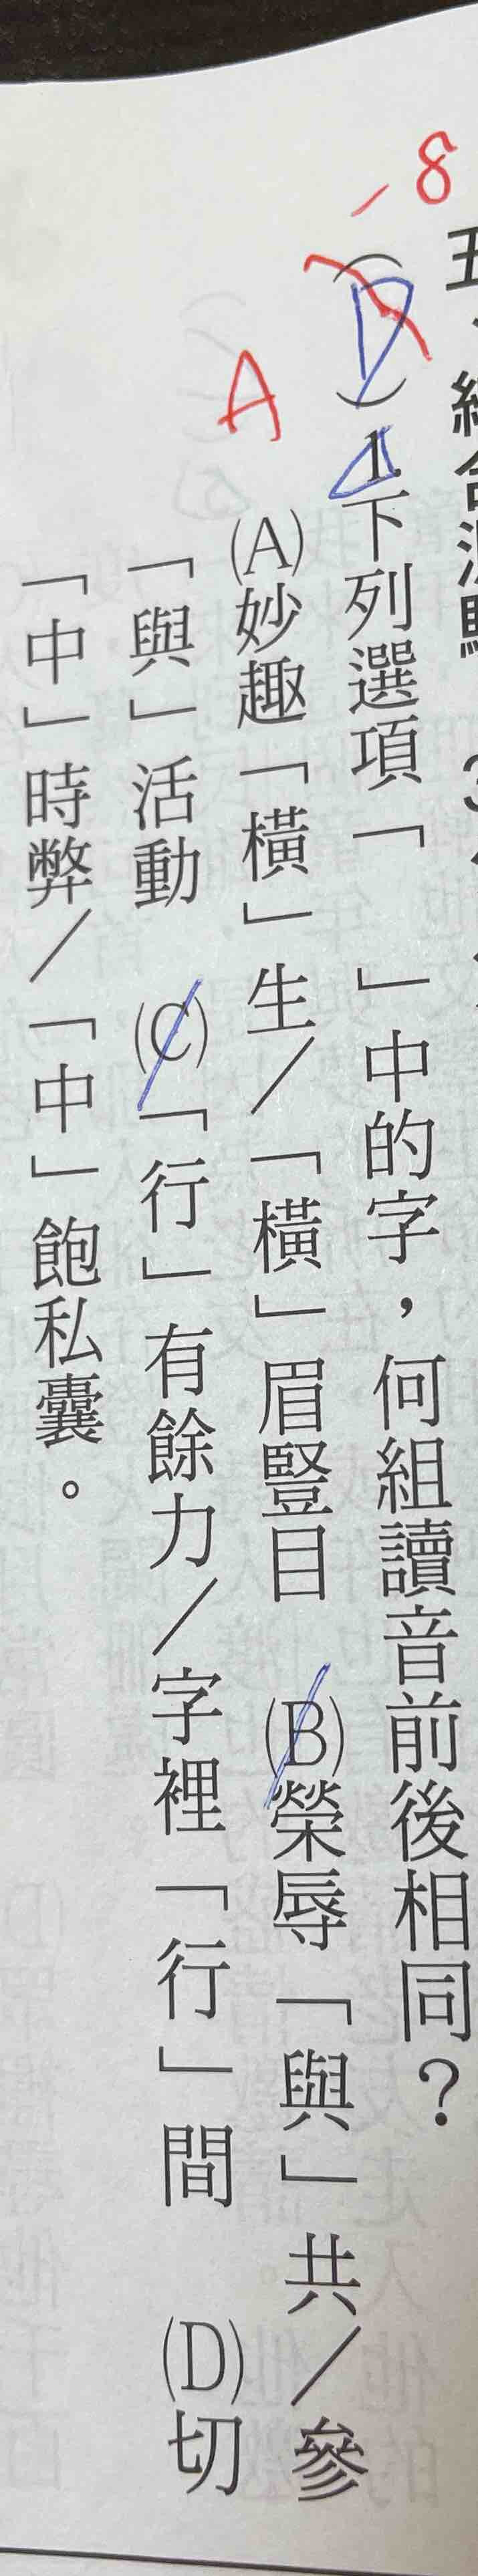 -8
五、綜合測驗
(D)1.下列選項「 」中的字，何組讀音前後相同？
A
(A)妙趣「橫」生／「橫」眉豎目 (B)榮辱「與」共／參
「與」活動 (C)「行」有餘力／字裡「行」間 (D)切
「中」時弊／「中」飽私囊。